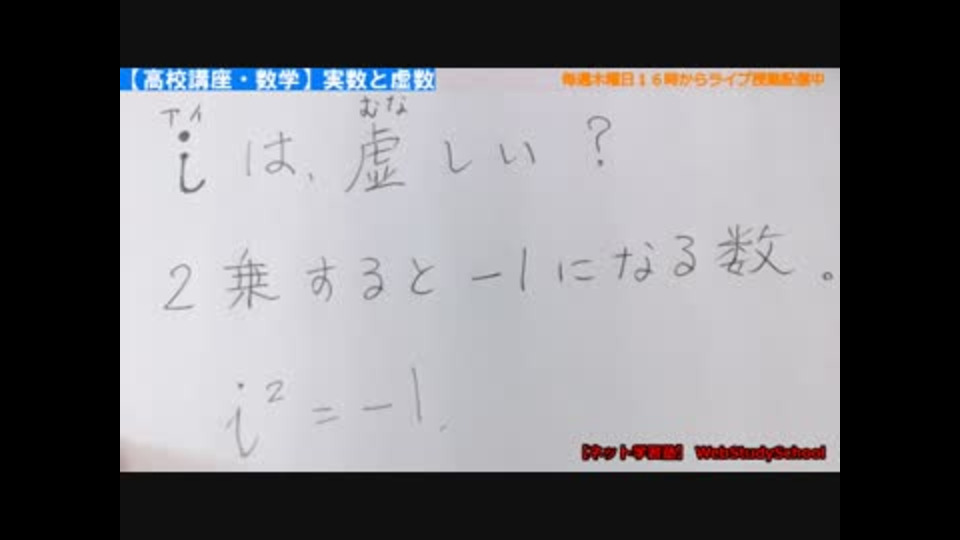 【高校講座・数学】実数と虚数
毎週木曜日16時からライブ授業配信中
アイ むな
i は、虚しい?
2乗すると-1になる数。
i² = -1.
【ネット学習塾】 WebStudySchool